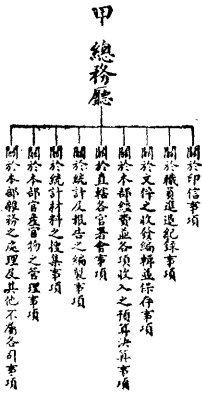 甲 總務廳
關於印信事項
關於職員進退紀錄事項
關於文件之收發編輯並保存事項
關於本部經費並各項收入之預算決算事項
關於直轄各官署會計事項
關於統計及報告之編製事項
關於統計材料之搜集事項
關於本部官產官物之管理事項
關於本部雜務之處理及其他不屬各司事項